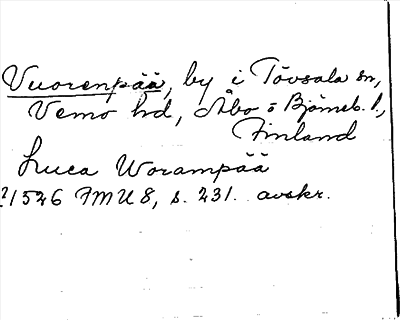 Vuorenpää, by i Tövsala sn,
Vemo hd, Åbo o Björneb. l.,
Finland
Luca Worampää
?1526 FMU 8, s. 231. avskr.